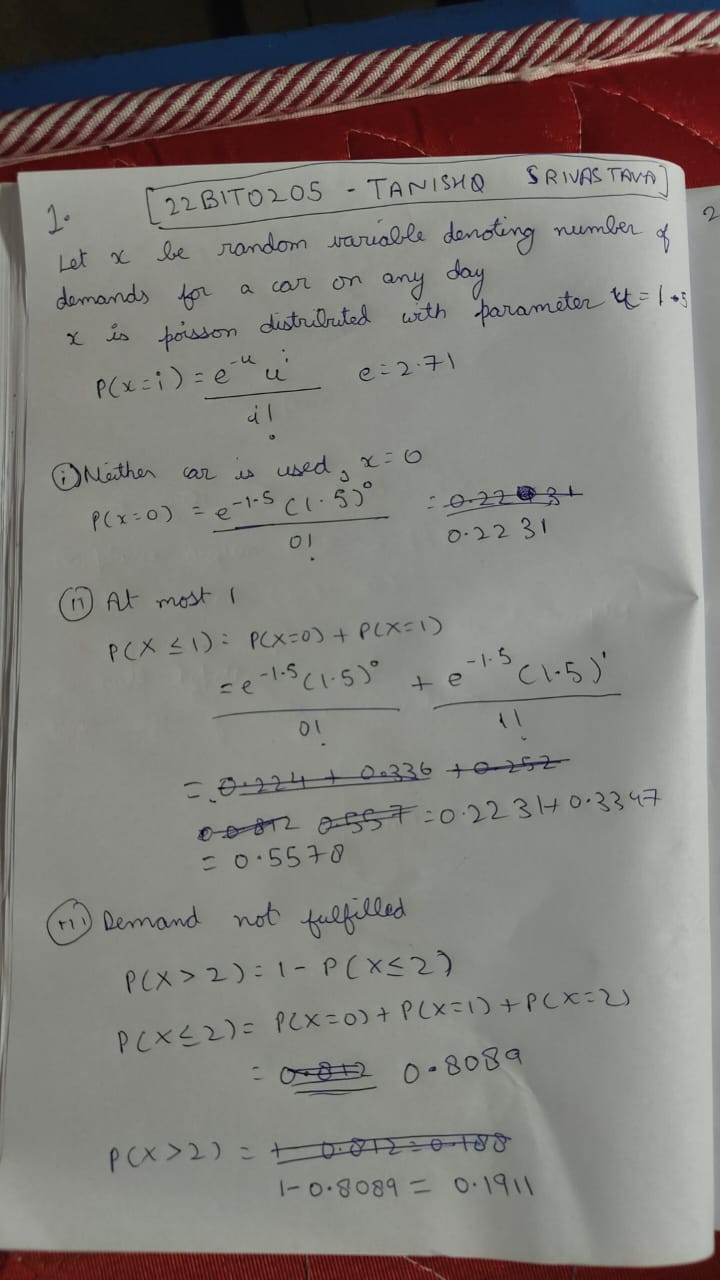 1. [22BIT0205 - TANISHQ SRIVASTAVA]
Let x be random variable denoting number of
demands for a car on any day
x is poisson distributed with parameter u = 1.5
P(x=i) = e^-u u^i / i! e = 2.71
(i) Neither car is used, x = 0
P(x=0) = e^-1.5 (1.5)^0 / 0! = 0.2231
(ii) At most 1
P(X ≤ 1) = P(X=0) + P(X=1)
= e^-1.5 (1.5)^0 / 0! + e^-1.5 (1.5)^1 / 1!
= 0.224 + 0.336 + 0.252
0.812 0.557 = 0.2231 + 0.3347
= 0.5578
(iii) Demand not fulfilled
P(X > 2) = 1 - P(X ≤ 2)
P(X ≤ 2) = P(X=0) + P(X=1) + P(X=2)
= 0.812 0.8089
P(X > 2) = 1 - 0.812 = 0.188
1 - 0.8089 = 0.1911
2